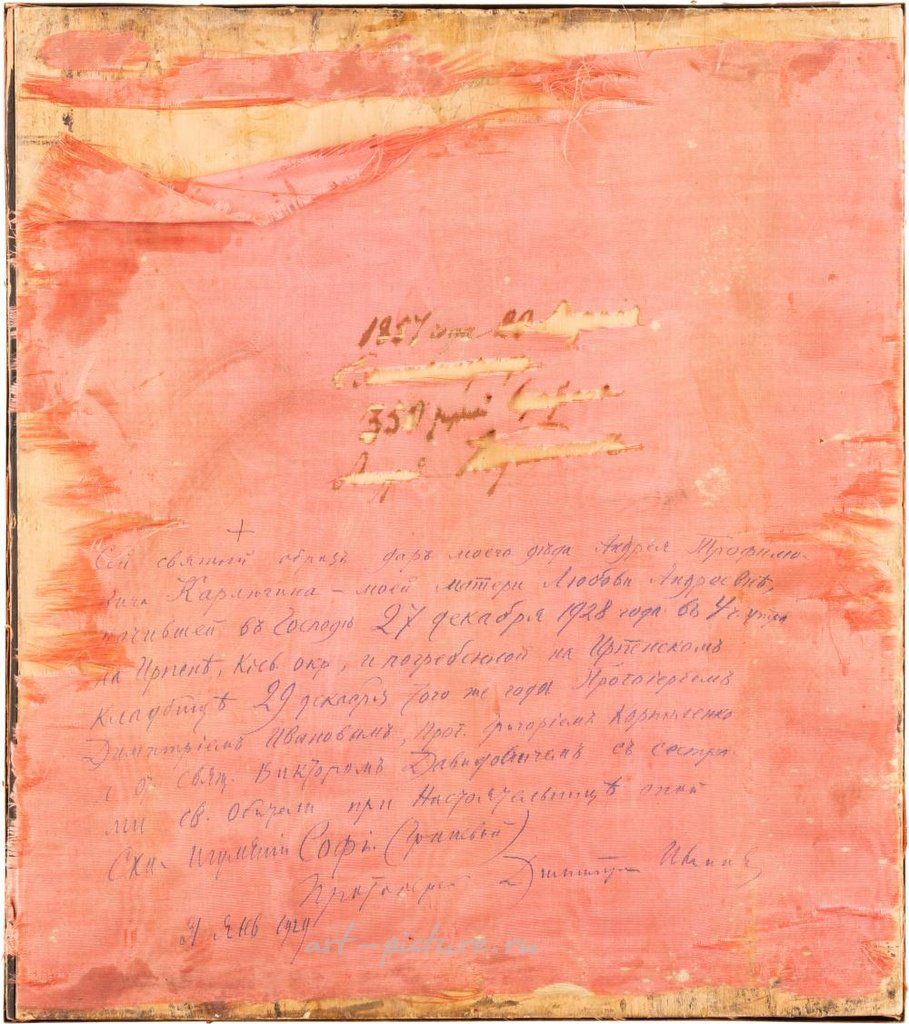 1857 года 20
350 рублей
+
Сей святый образъ даръ моего дѣда Андрея Трофимо-
вича Карлюгина – моей матери Любови Андреевнѣ,
почившей въ Господѣ 27 декабря 1928 года въ 4 ч. утра
на Ирпенѣ, Кіев. окр, и погребенной на Ирпенскомъ
Кладбищѣ 29 декабря того же года Протоіереемъ
Димитріемъ Ивановымъ, Прот. Григоріемъ
Свящ. Викторомъ Давидовичемъ съ сестра-
ми св. Обители при Настоятельницѣ оной
Схи- Игуменіи Софіи (Гриневой)
Протоіерей Димитрій Ивановъ
Янв 1929
art-picture.ru